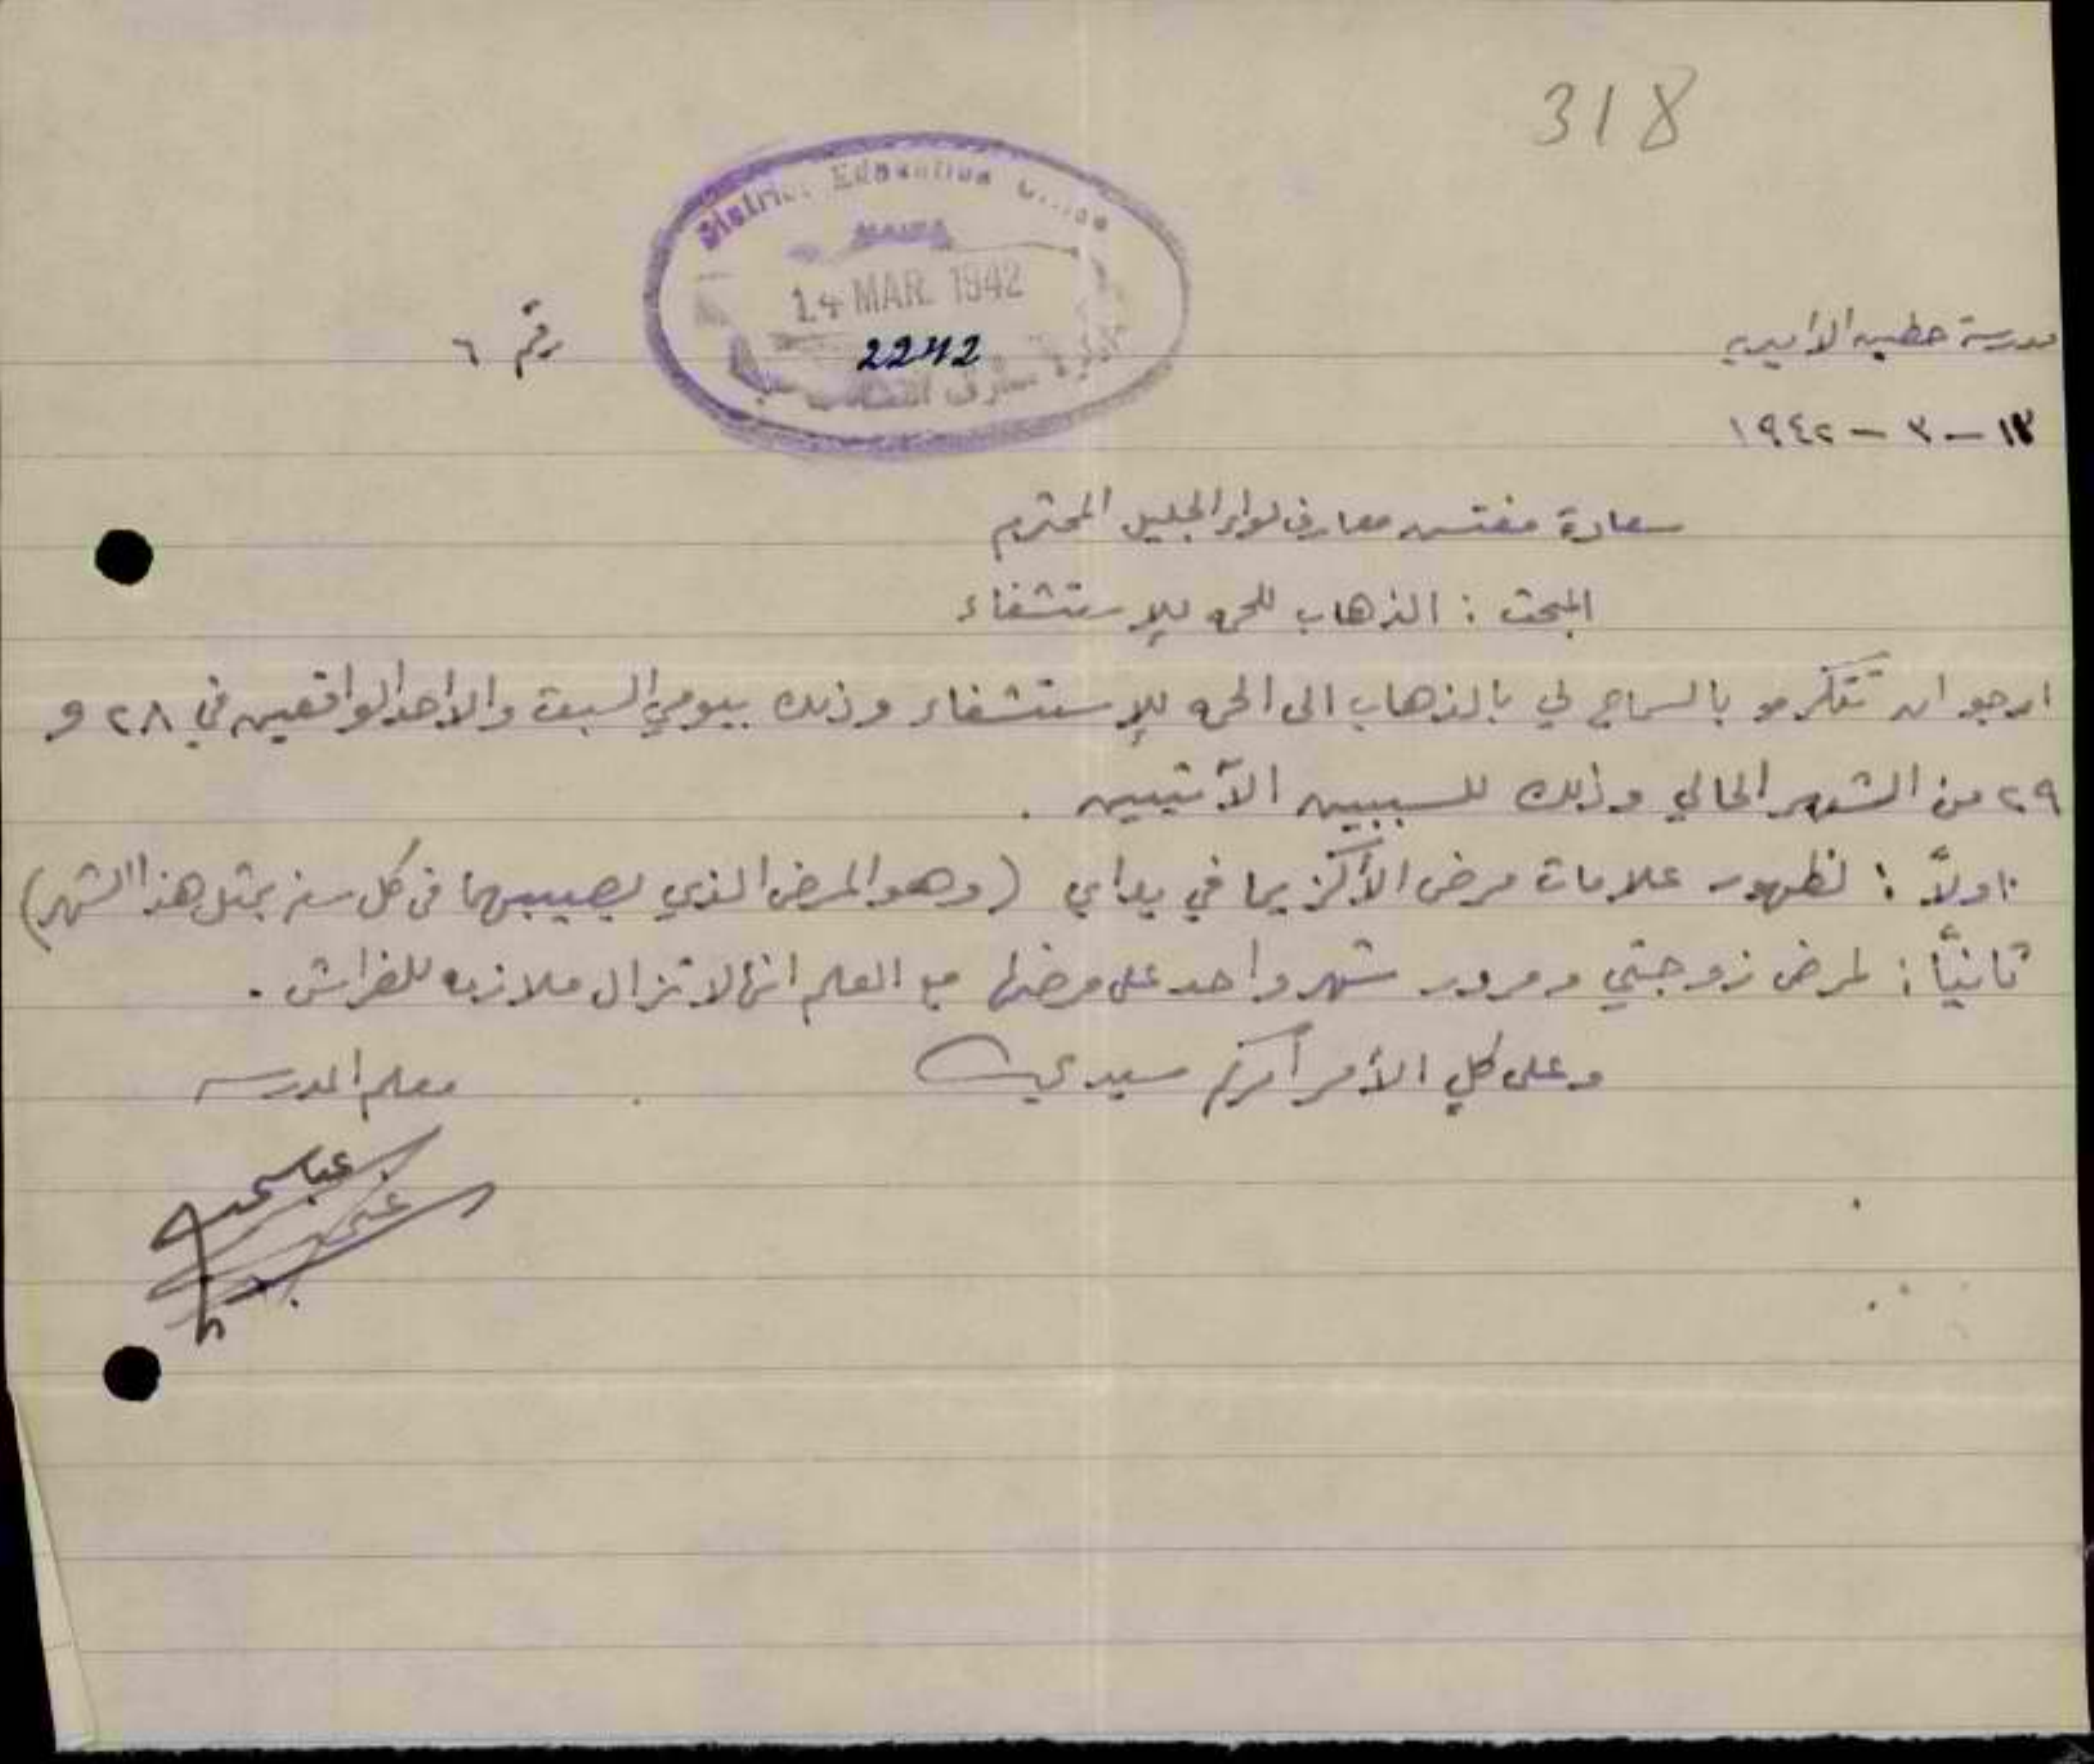 318
District Education Office
14 MAR. 1942
2242
رقم ٦
مدرسة حطين الاميرية
١٢ - ٣ - ١٩٤٢
سعادة مفتش معارف لواء الجليل المحترم
المبحث : الذهاب للحمه للإستشفاء
ارجو ان تتكرمو بالسماح لي بالذهاب الى الحمه للإستشفاء وذلك بيومي السبت والاحد الواقعين في ٢٨ و
٢٩ من الشهر الحالي وذلك للسببين الآتيين .
اولاً : لظهور علامات مرض الأكزيما في يداي (وهو المرض الذي يصيبهما في كل سنه بمثل هذا الشهر)
ثانياً : لمرض زوجتي ومرور شهر واحد على مرضها مع العلم انها لا تزال ملازمه للفراش .
وعلى كلٍ الأمر أمركم سيدي
معلم المدرسه
عباس